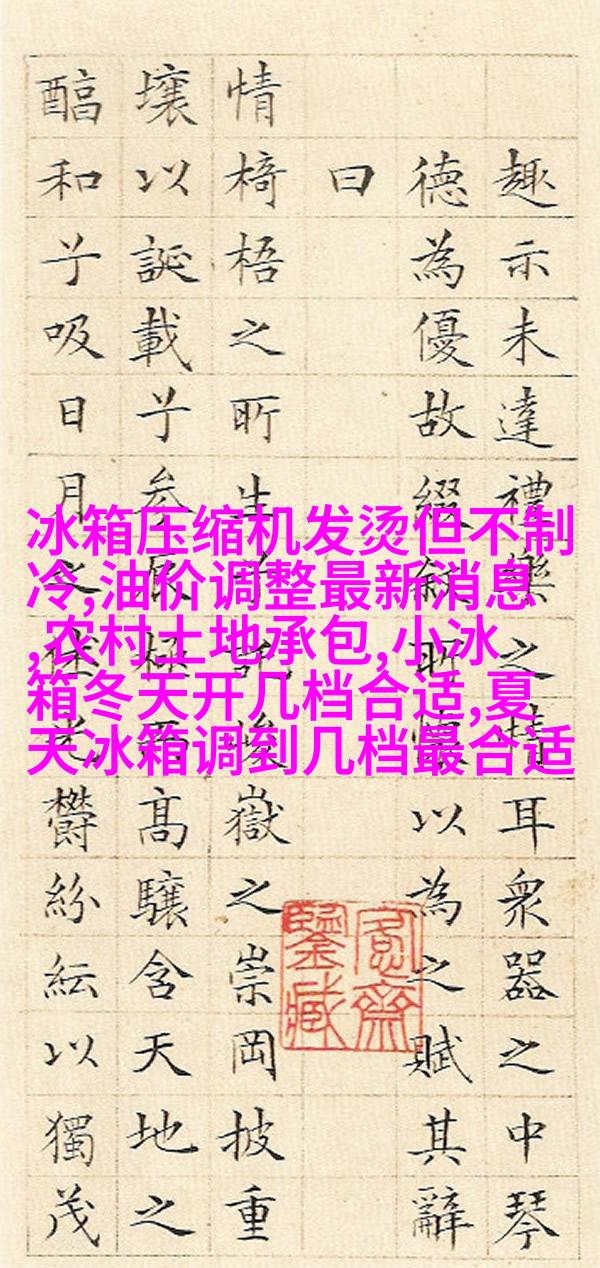 冰箱压缩机发烫但不制
冷,油价调整最新消息
,农村土地承包,小冰
箱冬天开几档合适,夏
天冰箱调到几档最合适
趣示未達禮樂之情耳衆器之中琴
德為優故綴敘所懷以為之賦其辭
曰
情椅梧之所生兮託峻嶽之崇岡披重
壤以誕載兮參辰極而高驤含天地之
醕和兮吸日月之休光鬱紛紜以獨茂
愙齋
鑒藏